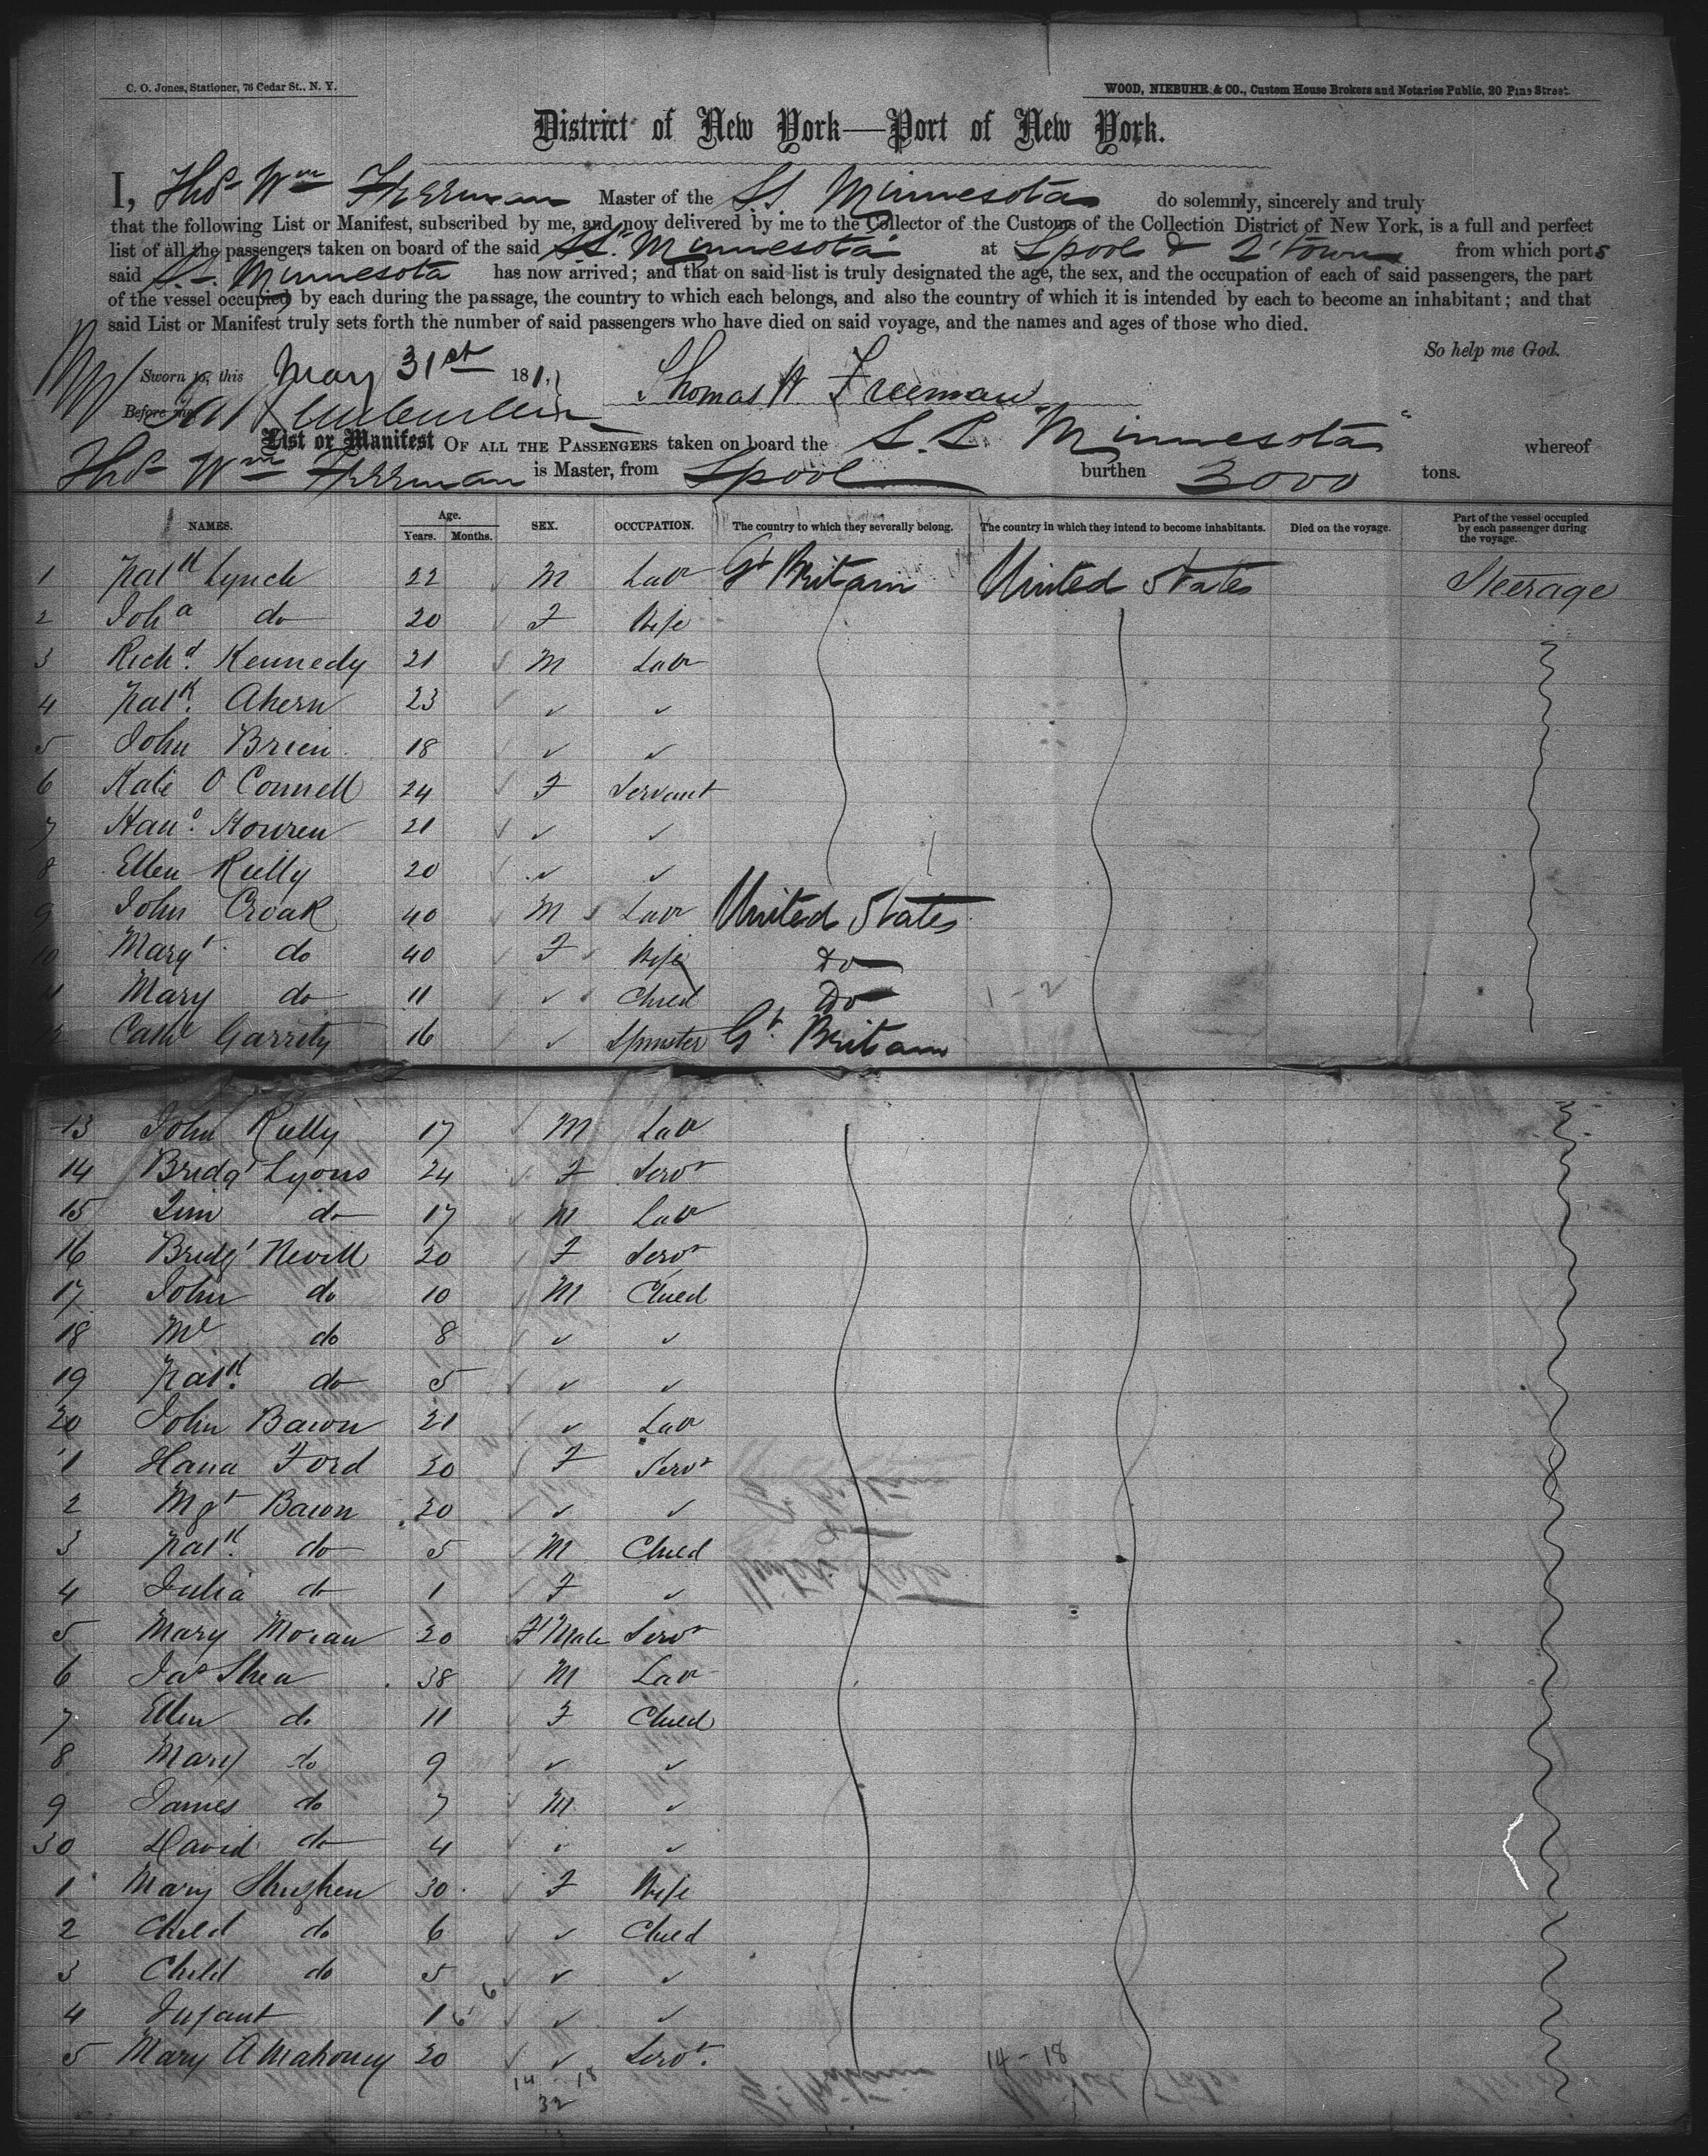 C. O. Jones, Stationer, 76 Cedar St., N. Y.
WOOD, NIEBUHR & CO., Custom House Brokers and Notaries Public, 20 Pine Street.
District of New York—Port of New York.
I, Thos Wm Freeman Master of the S.S. Minnesota do solemnly, sincerely and truly
that the following List or Manifest, subscribed by me, and now delivered by me to the Collector of the Customs of the Collection District of New York, is a full and perfect
list of all the passengers taken on board of the said S.S. "Minnesota" at Lpool & Q'town from which ports
said S.S. Minnesota has now arrived; and that on said list is truly designated the age, the sex, and the occupation of each of said passengers, the part
of the vessel occupied by each during the passage, the country to which each belongs, and also the country of which it is intended by each to become an inhabitant; and that
said List or Manifest truly sets forth the number of said passengers who have died on said voyage, and the names and ages of those who died.
So help me God.
Sworn to, this May 31st 181. Thomas W Freeman
Before me
List or Manifest OF ALL THE PASSENGERS taken on board the S.S. "Minnesota" whereof
Thos Wm Freeman is Master, from Lpool burthen 3000 tons.
NAMES. Age. Years. Months. SEX. OCCUPATION. The country to which they severally belong. The country in which they intend to become inhabitants. Died on the voyage. Part of the vessel occupied by each passenger during the voyage.
1 Patk Lynch 22 M Labr Gt Britain United States Steerage
2 Joha do 20 F Wife
3 Richd. Kennedy 21 M Labr
4 Patk. Ahern 23 ✓ ✓
5 John Brien 18 ✓ ✓
6 Kate O Connell 24 F Servant
7 Hano. 21 ✓ ✓
8 Ellen Reilly 20 ✓ ✓
9 John Croak 40 M Labr United States
10 Margt. do 40 F Wife Do
11 Mary do 11 ✓ Child Do
12 Cathe Garrety 16 ✓ Spinster Gt. Britain
1-2
13 John Reilly 17 M Labr
14 Bridgt Lyons 24 F Servt
15 Tim do 17 M Labr
16 Bridgt Nevill 20 F Servt
17 John do 10 M Child
18 Ml do 8 ✓ ✓
19 Patk. do 5 ✓ ✓
20 John Bawn 21 ✓ Labr
1 Hana Ford 20 F Servt
2 Mgt Bawn 20 ✓ ✓
3 Patk. do 5 M Child
4 Julia do 1 F ✓
5 Mary Moran 20 F Male Servt
6 Jas Shea 38 M Labr
7 Ellen do 11 F Child
8 Mary do 9 ✓ ✓
9 James do 7 M ✓
30 David do 4 ✓ ✓
1 Mary 30 F Wife
2 Child do 6 ✓ Child
3 Child do 5 ✓ ✓
4 Infant 1 ✓ ✓
5 Mary A Mahoney 20 ✓ Servt.
14 - 18
14 - 18
32